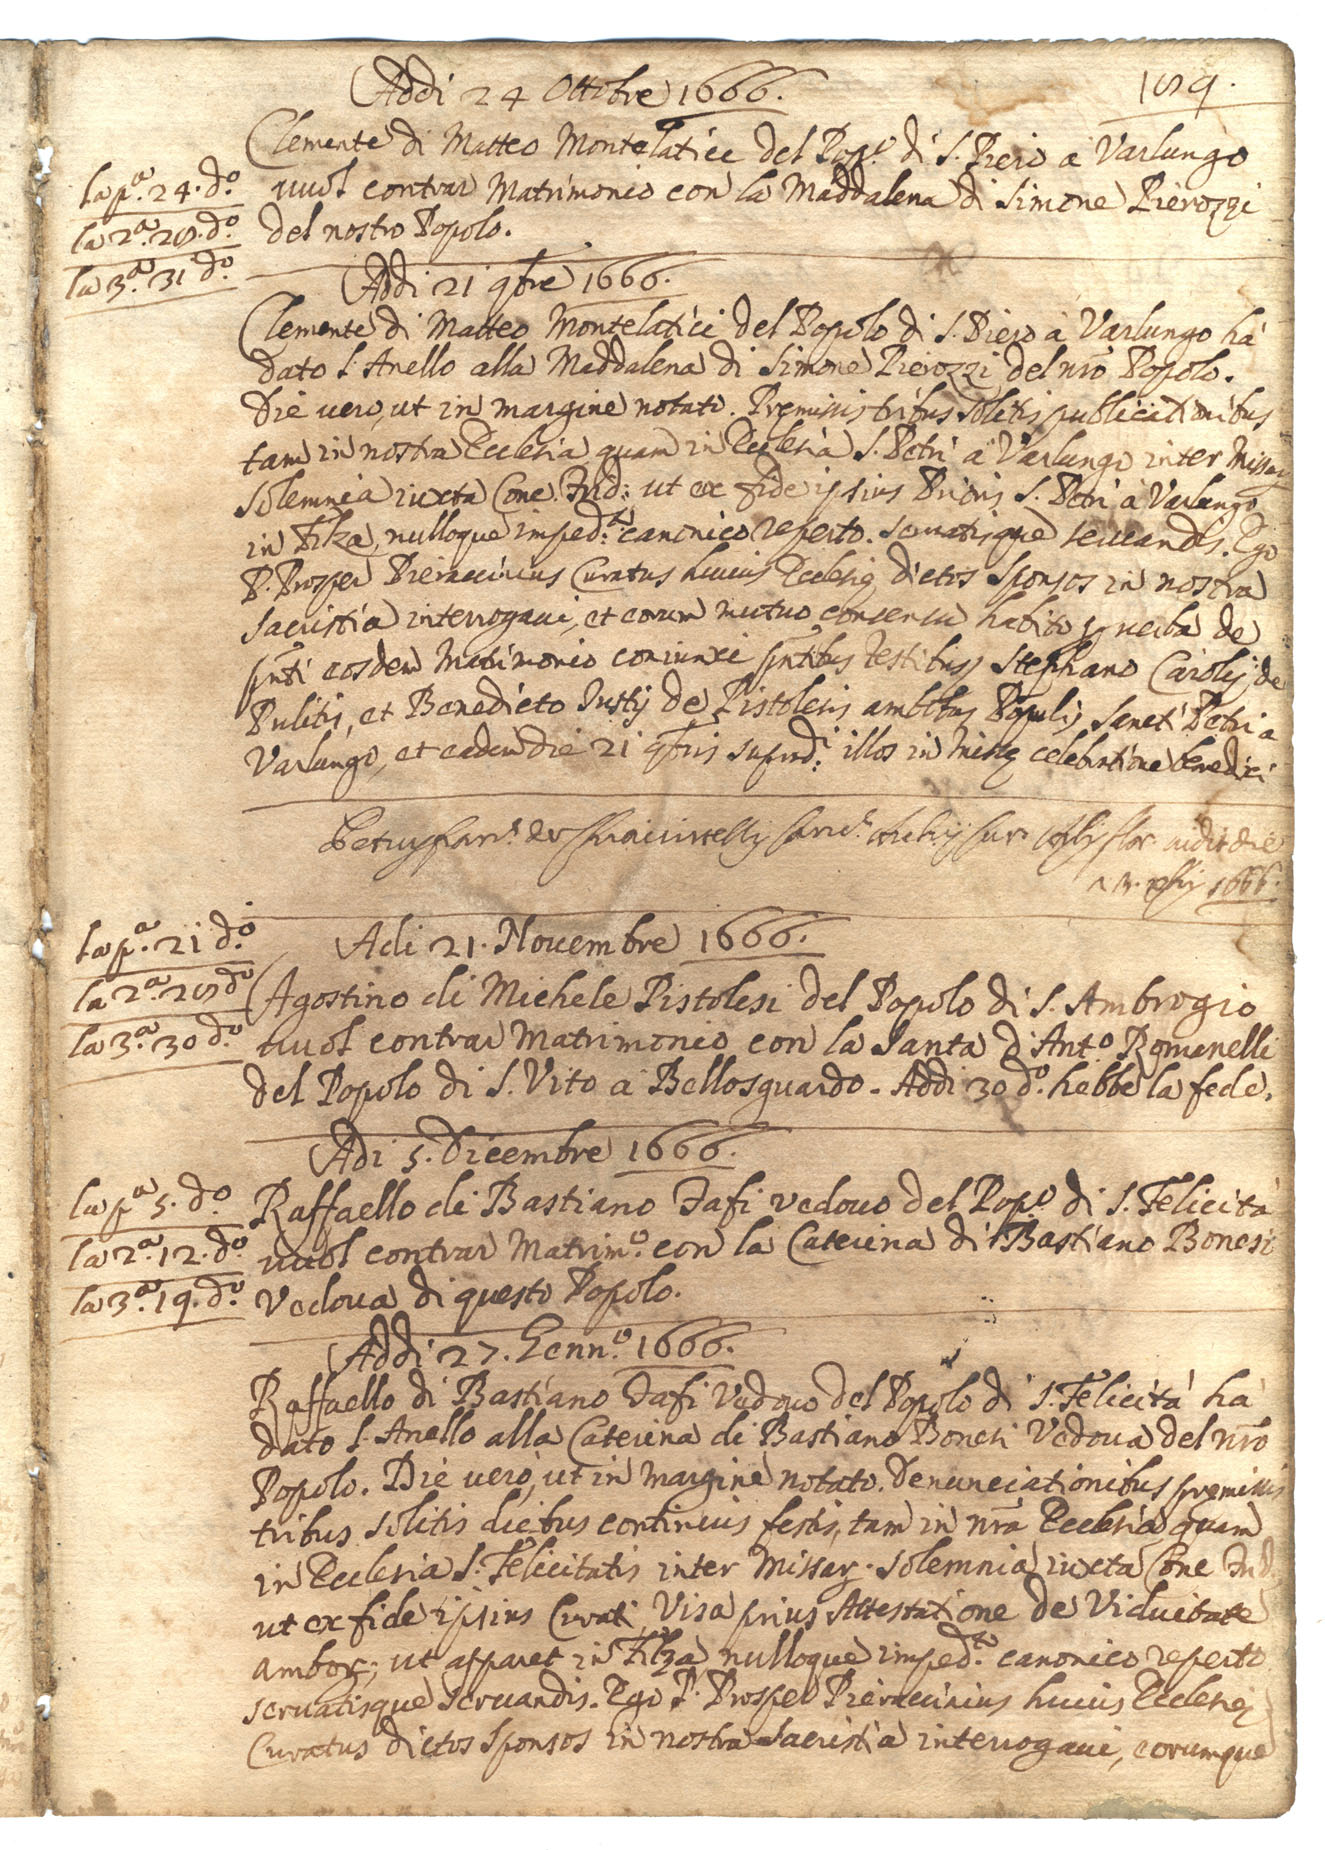 Addi 24 Ottobre 1666.
189.
Clemente di Matteo Montelatici del Pop.o di S. Piero a Varlungo
la p.a 24. d.o
vuol contrar Matrimonio con la Maddalena di Simone Pierozzi
la 2.a 28. d.o
del nostro Popolo.
la 3.a 31 d.o
Addi 21 9bre 1666.
Clemente di Matteo Montelatici del Popolo di S. Piero à Varlungo hà
dato l'Anello alla Maddalena di Simone Pierozzi del nrõ Popolo.
Die vero, ut in margine notato. Premissis tribus solitis publicationibus
tam in nostra Ecclesia quam in Ecclesia S. Petri a Varlungo inter Missarum
solemnia iuxta Conc. Trid: ut ex fide ipsius Prioris S. Petri à Varlungo
in Filza, nulloque imped.to canonico reperto. servatisque servandis. Ego
P. Prosper Pieraccinius Curatus huius Ecclesię dictos sponsos in nostra
Sacristia interrogaui, et eorum mutuo consensu habito p verba de
pñti eosdem Matrimonio coniunxi pñtibus testibus Stephano Carolij de
Pulitis, et Benedicto Justij de Pistolesis ambibus Populi Sancti Petri a
Varlungo, et eadem die 21 9bris suprad.i illos in Missę celebratione benedixi
vidit die
1666.
la p.a 21 d.o
Adi 21. Nouembre 1666.
la 2.a 28 d.o
Agostino di Michele Pistolesi del Popolo di S. Ambrogio
la 3.a 30 d.o
vuol contrar Matrimonio con la Santa d'Ant.o Romanelli
del Popolo di S. Vito a Bellosguardo. Addi 30 d.o hebbe la fede.
Adi 5. Dicembre 1666.
la p.a 5. d.o
Raffaello di Bastiano Tafi vedouo del Pop.o di S. Felicita
la 2.a 12. d.o
vuol contrar Matrim.o con la Caterina di Bastiano Bonesi
la 3.a 19. d.o
Vedoua di questo Popolo.
Addi 27. Genn.o 1666.
Raffaello di Bastiano Tafi Vedouo del Popolo di S. Felicità hà
dato l'Anello alla Caterina di Bastiano Bonesi Vedoua del nrõ
Popolo. Die vero, ut in margine notato. Denunciationibus premissis
tribus solitis diebus continuis festis, tam in nrã Ecclesia quam
in Ecclesia S. Felicitatis inter Missar. solemnia iuxta Conc Trid.
ut ex fide ipsius Curati, Visa prius Attestatione de Viduitate
ambor., ut apparet in Filza nulloque imped.to canonico reperto
seruatisque seruandis. Ego P. Prosper Pieraccinius huius Ecclesię
Curatus dictos sponsos in nostra Sacristia interrogaui, eorumque